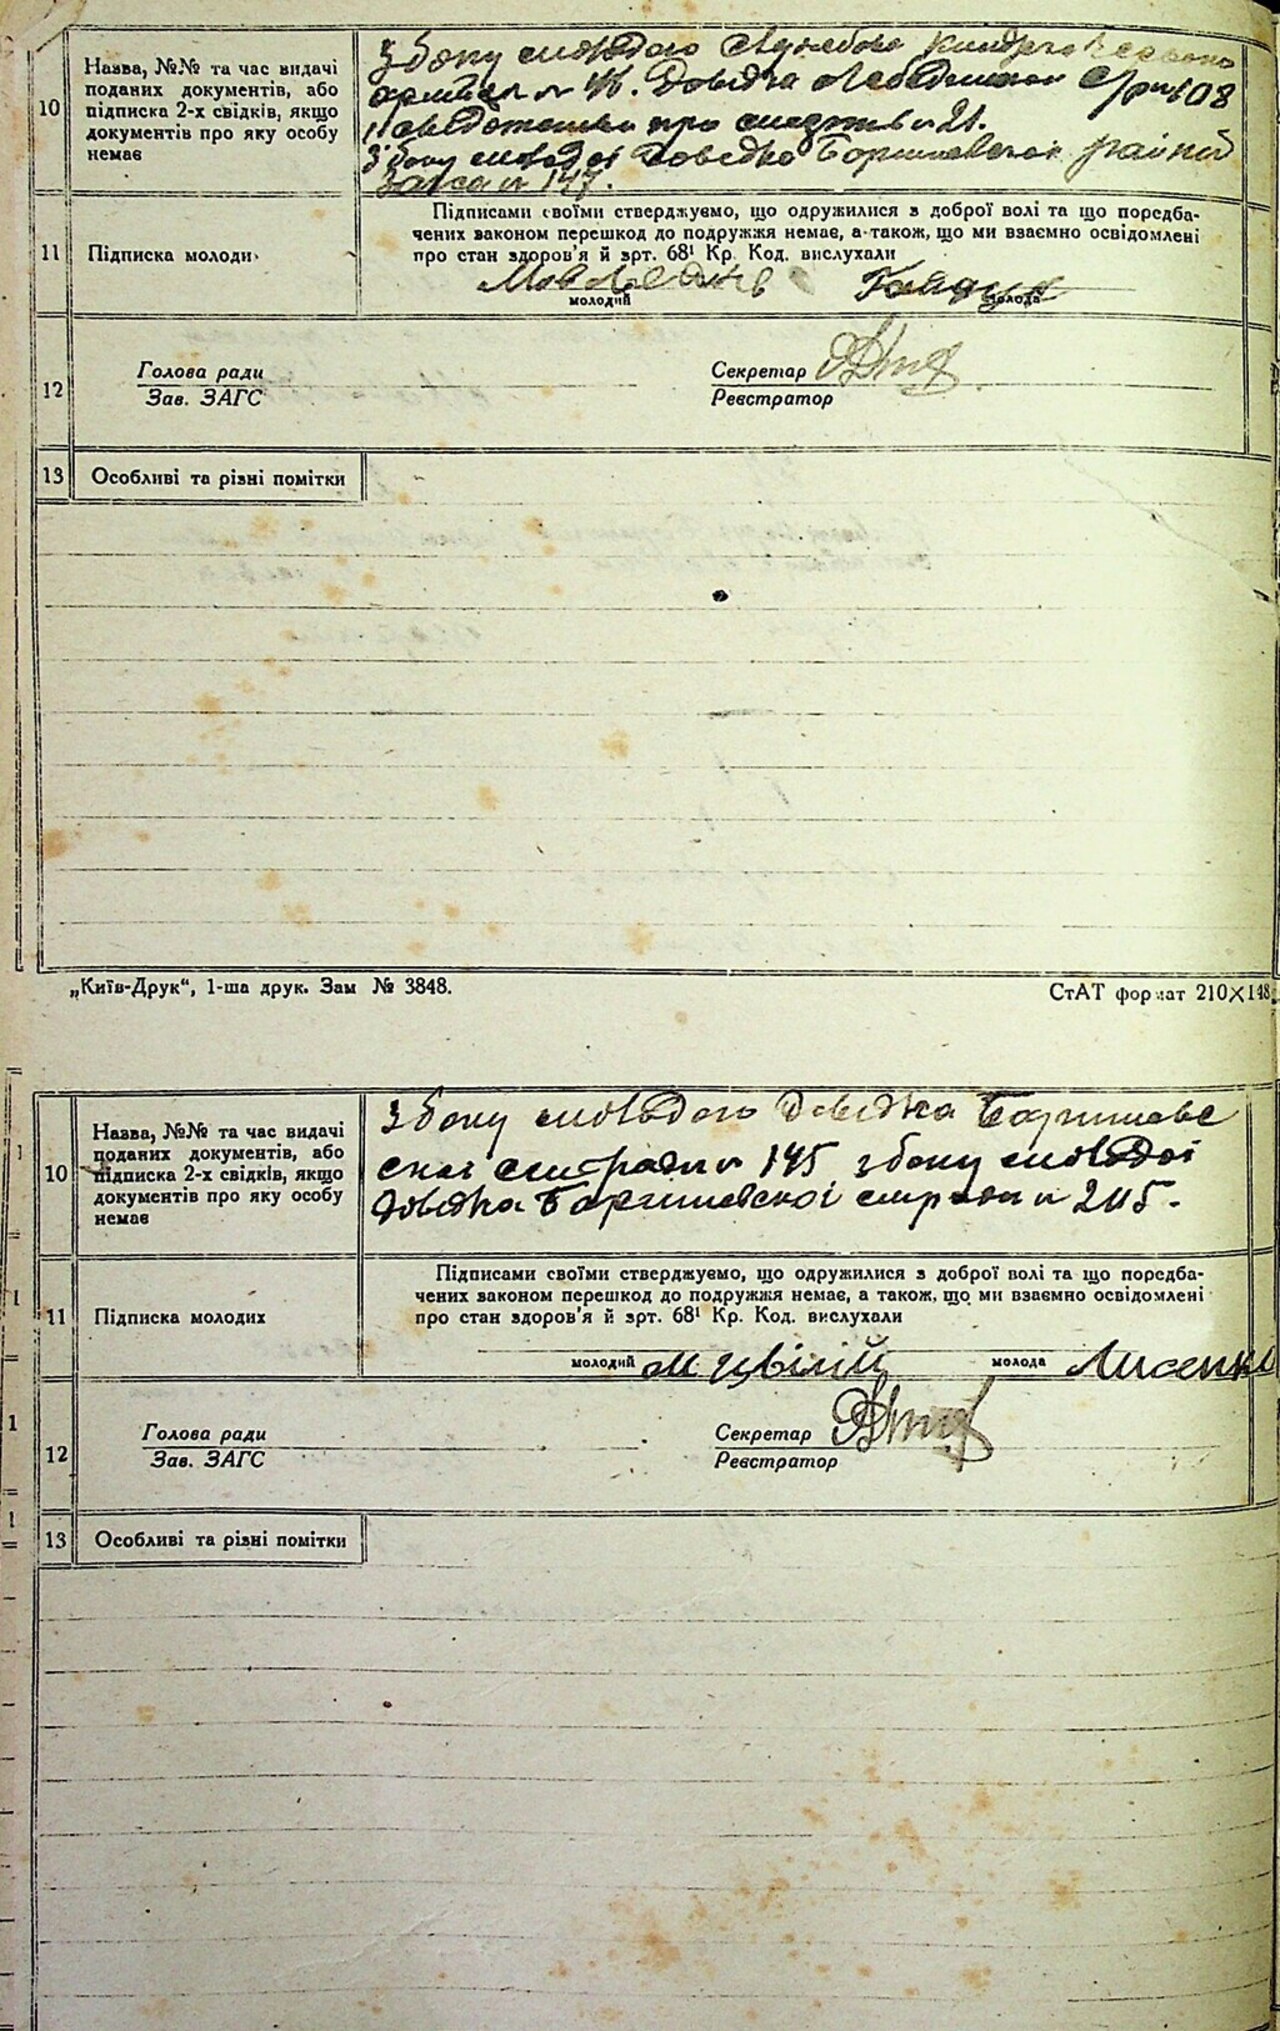 10
Назва, №№ та час видачі
поданих документів, або
підписка 2-х свідків, якщо
документів про яку особу
немає
З боку молодого
Довідка 108
про 21.
З боку молодої Довідка Боришевской
Загса № 147.
11
Підписка молоди
Підписами своїми стверджуємо, що одружилися з доброї волі та що поредба-
чених законом перешкод до подружжя немає, а також, що ми взаємно освідомлені
про стан здоров'я й зрт. 68¹ Кр. Код. вислухали
молодий
молода
12
Голова ради
Зав. ЗАГС
Секретар
Реєстратор
13
Особливі та різні помітки
„Київ-Друк“, 1-ша друк. Зам № 3848.
СтАТ формат 210×148
10
Назва, №№ та час видачі
поданих документів, або
підписка 2-х свідків, якщо
документів про яку особу
немає
З боку молодого довідка
№ 145 з боку молодої
довідка № 205.
11
Підписка молодих
Підписами своїми стверджуємо, що одружилися з доброї волі та що поредба-
чених законом перешкод до подружжя немає, а також, що ми взаємно освідомлені
про стан здоров'я й зрт. 68¹ Кр. Код. вислухали
молодий М Цвілій молода Лисенко
12
Голова ради
Зав. ЗАГС
Секретар
Реєстратор
13
Особливі та різні помітки